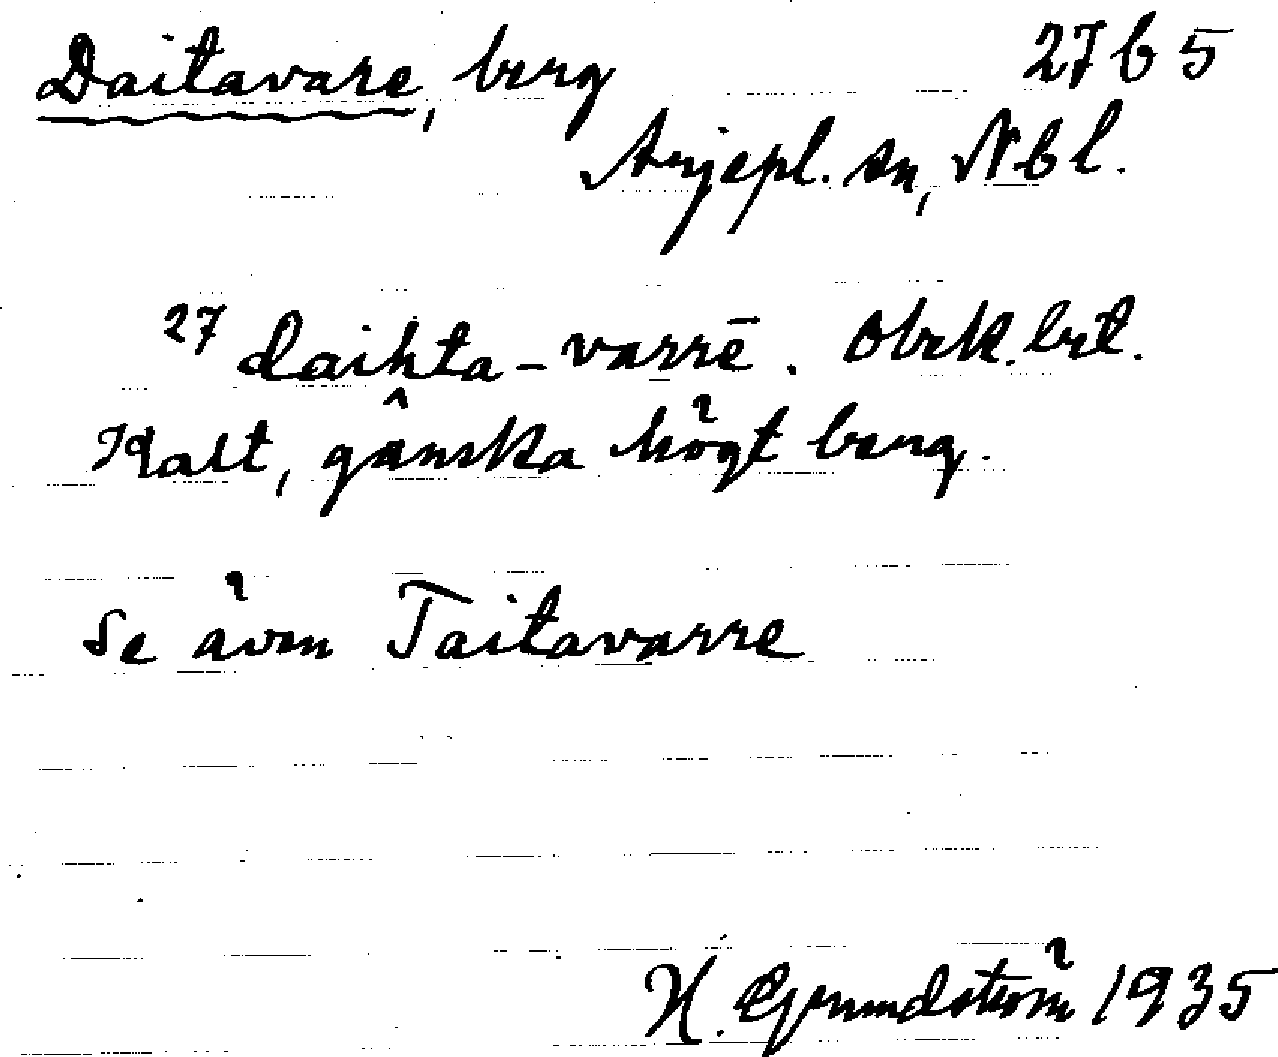 Daitavare, berg 27 b 5
Arjepl. sn, Nbl.
27 daihta-varrē. Obek. bet.
Kalt, ganska högt berg.
Se även Taitavarre
H. Grundström 1935